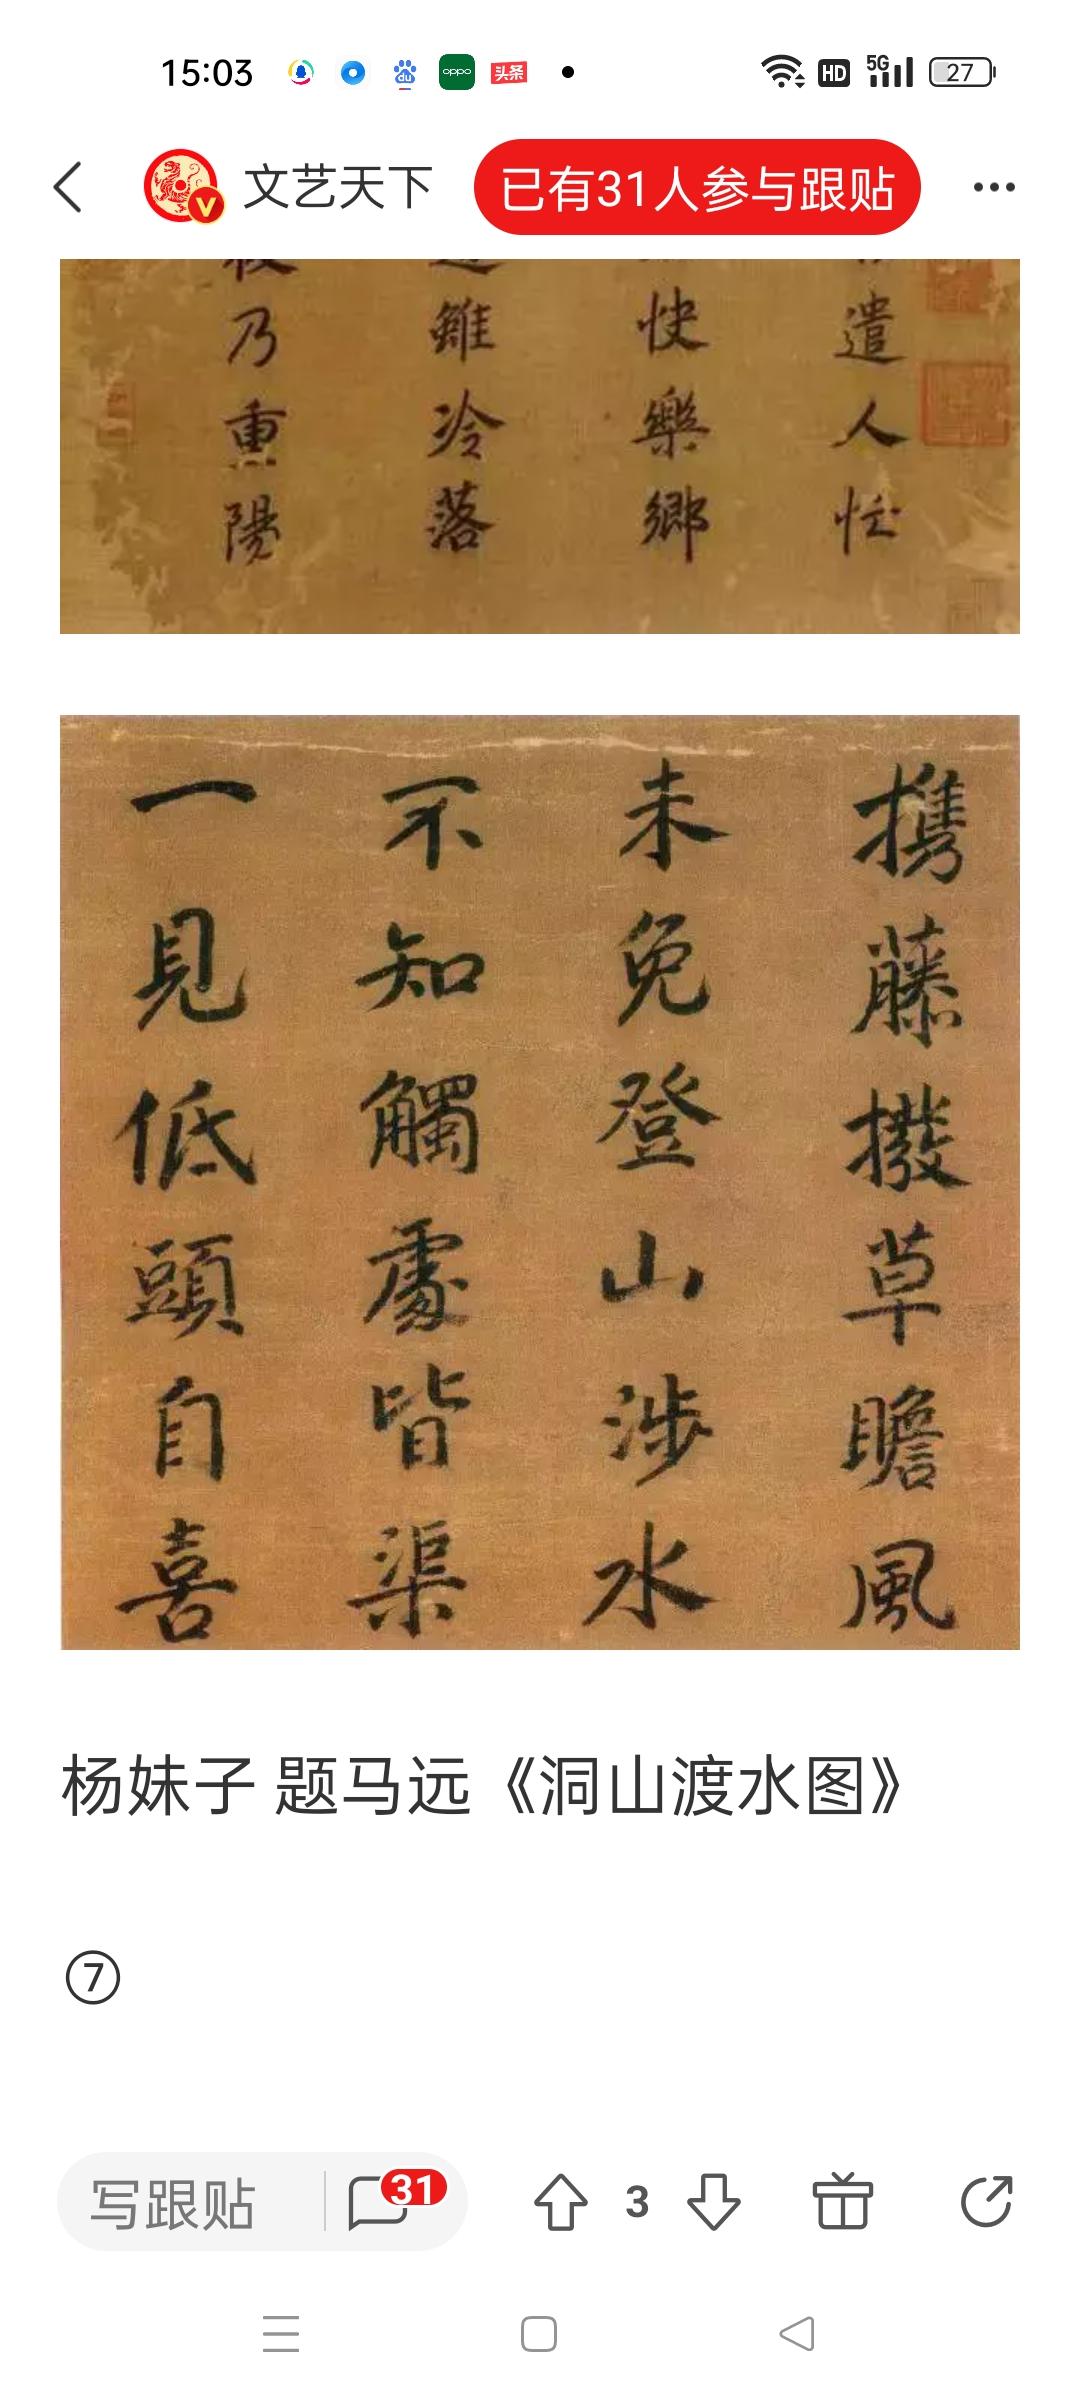 15:03
du
oppo
头条
HD
5G
27
文艺天下
已有31人参与跟贴
遣人忙
快樂鄉
雖冷落
乃重陽
携藤撥草瞻風
未免登山涉水
不知觸處皆渠
一見低頭自喜
杨妹子 题马远《洞山渡水图》
⑦
写跟贴
31
3